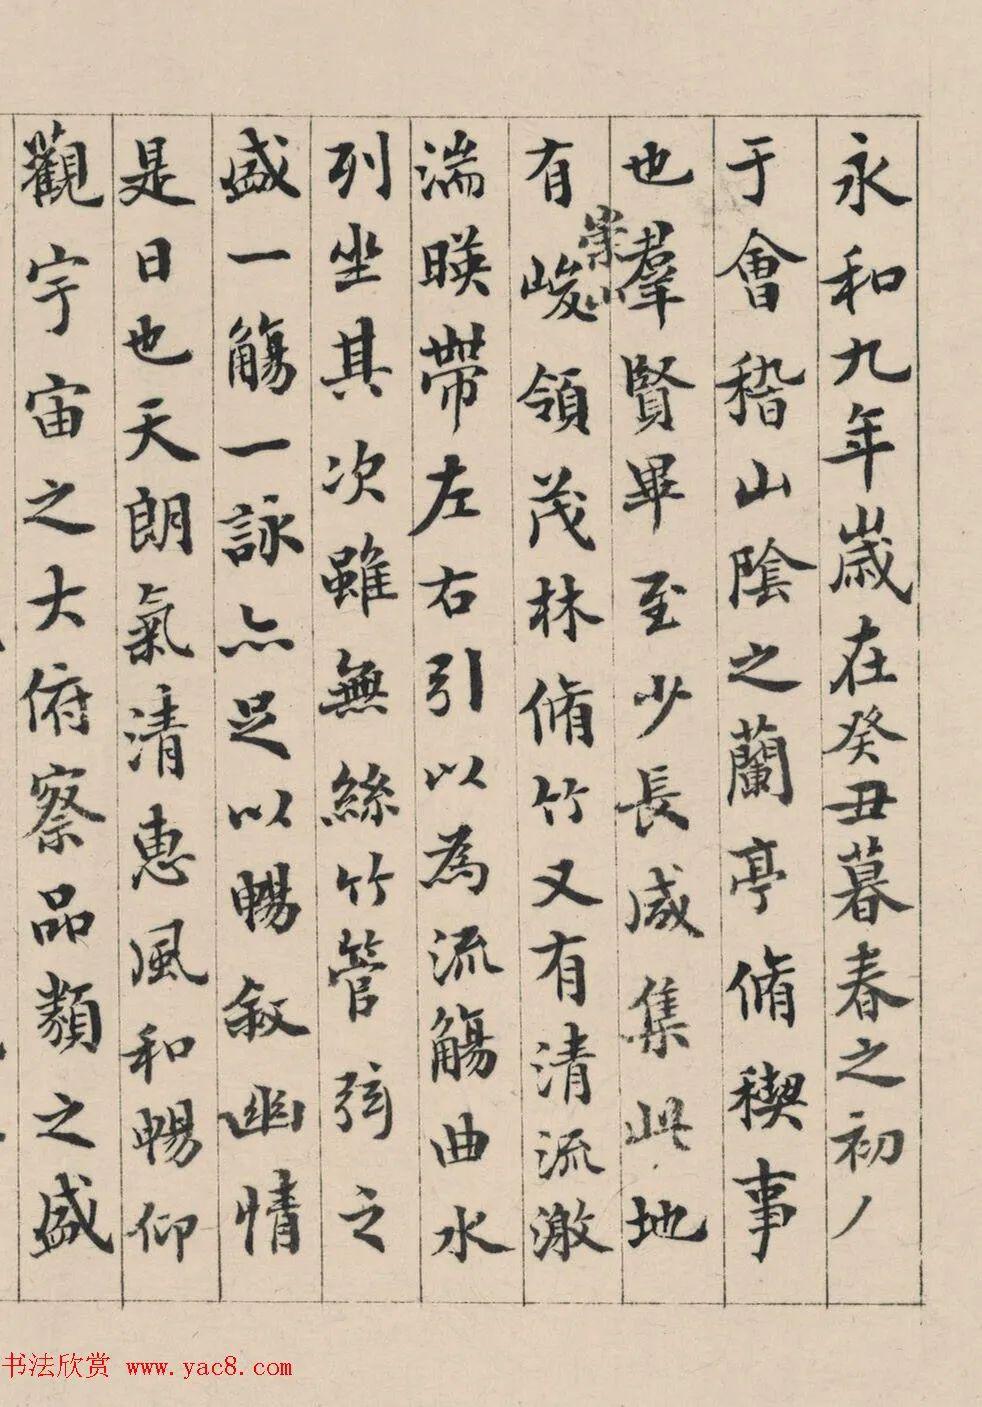 永和九年歲在癸丑暮春之初
于會稽山陰之蘭亭脩稧事
也羣賢畢至少長咸集此地
有崇山峻領茂林脩竹又有清流激
湍暎帶左右引以為流觴曲水
列坐其次雖無絲竹管弦之
盛一觴一詠亦足以暢敘幽情
是日也天朗氣清惠風和暢仰
觀宇宙之大俯察品類之盛
书法欣赏 www.yac8.com